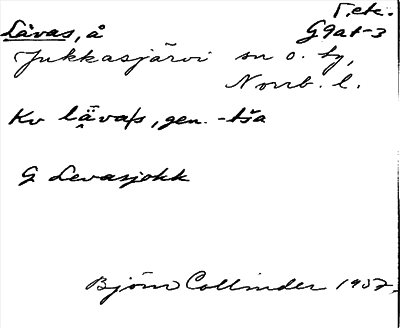 T.ek.
Lävas, å G9at-3
Jukkasjärvi sn o. tg,
Norrb. l.
Kv lǟ̮vaʹs, gen. -tša
G Levasjokk
Björn Collinder 1957.